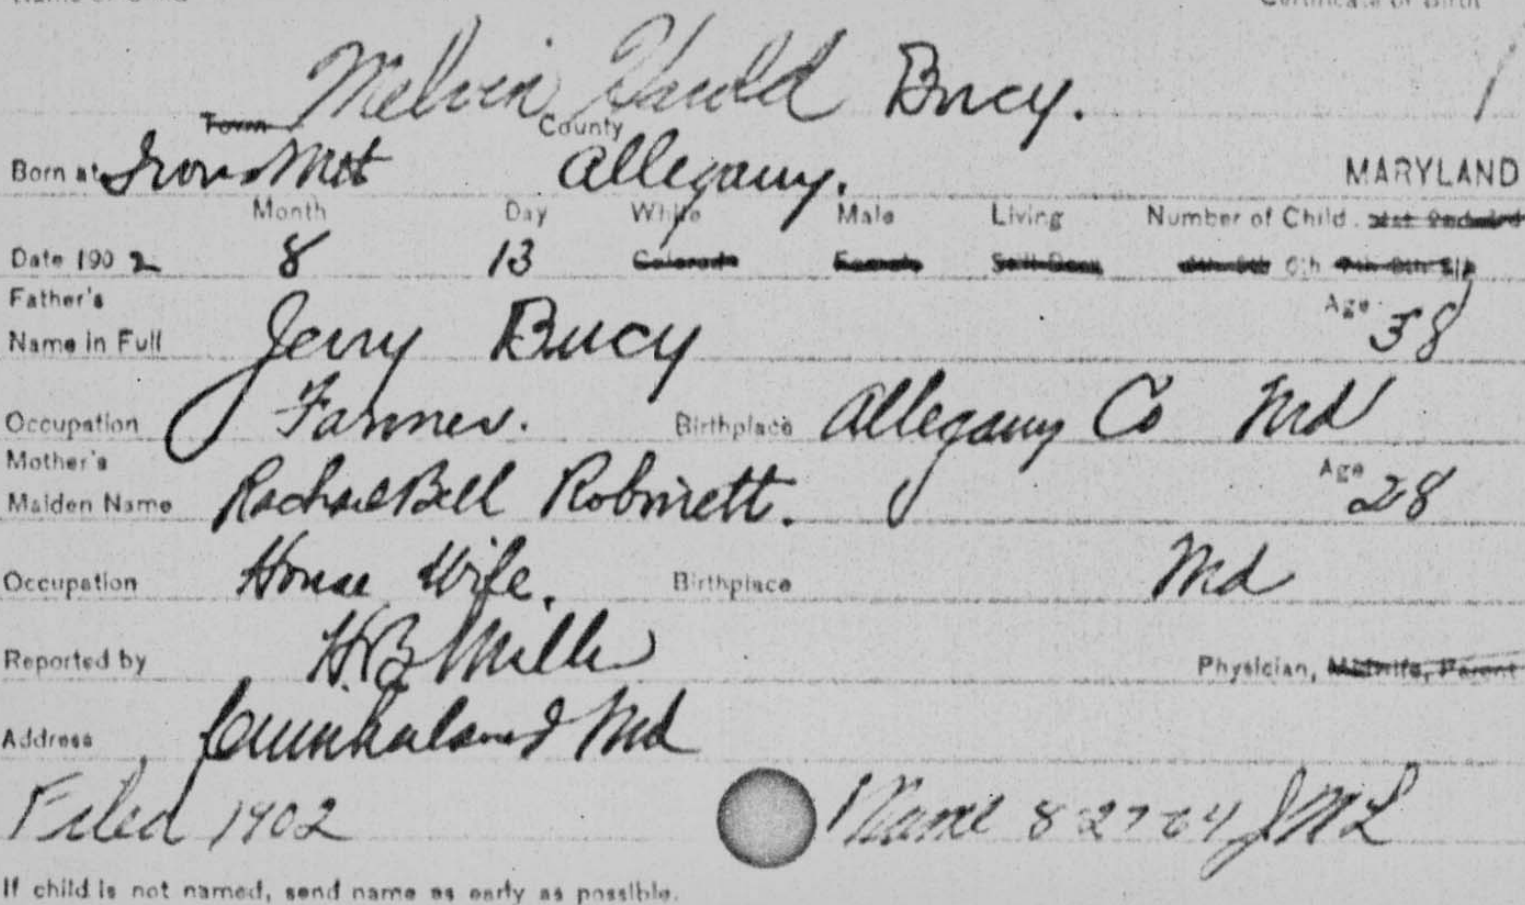 Certificate of Birth
Melvin Harold Bucy.
Town County
Born at Iron Mt Allegany. MARYLAND
Month Day White Male Living Number of Child 1st 2nd 3rd
Date 1902 8 13 Colored Female Still Born 4th 5th 6th 7th 8th
Father's Age 38
Name in Full Jerry Bucy
Occupation Farmer. Birthplace Allegany Co Md
Mother's Age 28
Maiden Name Rachael Bell Robinett.
Occupation House Wife. Birthplace Md
Reported by H.B. Miller Physician, Midwife, Parent
Address Cumberland Md
Filed 1902 Name 8-27-64 JML
If child is not named, send name as early as possible.